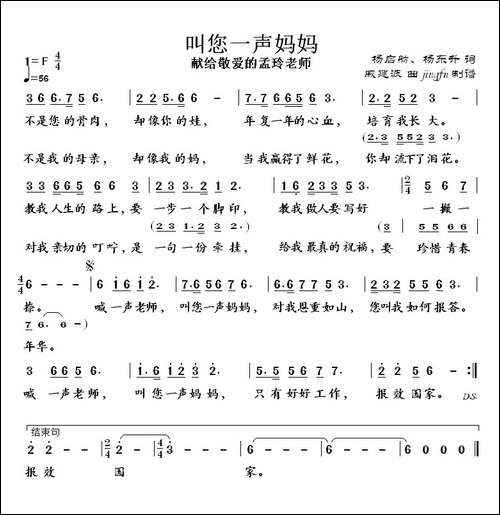 叫您一声妈妈
献给敬爱的孟玲老师
1=F 4/4
♩=56
杨启舫、杨东升 词
戚建波 曲 jingfu 制谱
3 6 6. 7 5 6. | 2 2 5. 6 6 - | 7. 6 5 6 7 6 7 5 3. | 2. 3 5 5 2 3 -
不是您的骨肉, 却像你的娃, 年复一年的心血, 培育我长大。
(2. 3 5 5 2 3 3)
不是我的母亲, 却像我的妈, 当我赢得了鲜花, 你却流下了泪花。
3 3 6 6 5 6 6 | 3 3. 2 1 2. | 1 6. 2 3 3 5 3 - | 2/4 5 6 7
教我人生的路上,要 一步一个脚印, 教我做人要写好 一撇一
(2 3 1. 2 3 3) (3 5 5 6 6)
对我亲切的叮咛,是 一句一份牵挂, 给我最真的祝福,要 珍惜青春
4/4 6 - - - | 6 1 6 1 2. | 7. 6 5 6 7 6. | 7. 5 6 7 5 3. | 2 3 2 5 6 3 -
捺。 喊一声老师, 叫您一声妈妈, 对我恩重如山, 您叫我如何报答。
7 6. (6 - -)
年华。
3 6 6 5 6. | 1. 6 1 2 3 2 - | 5. 5 5 6 7 7 - | 2 2 5 6 - :||
喊一声老师, 叫您一声妈妈, 只有好好工作, 报效国家。 D.S.
结束句
2 2 - - | 2/4 2 - | 4/4 3 - - - | 6 - - - | 6 - - - | 6 0 0 0 ||
报效 国 家。